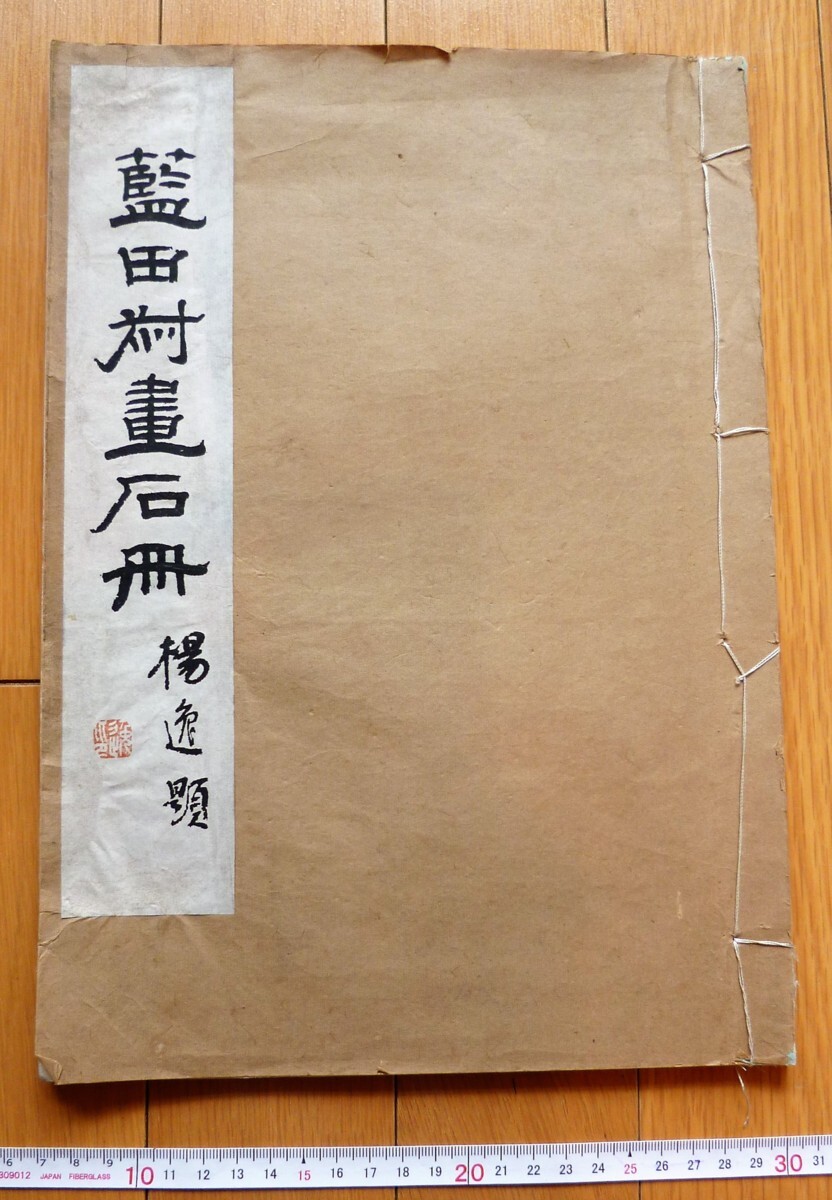 藍田叔畫石冊
楊逸題
6 7 8 9 10 11 12 13 14 15 16 17 18 19 20 21 22 23 24 25 26 27 28 29 30 31
309012 JAPAN FIBERGLASS